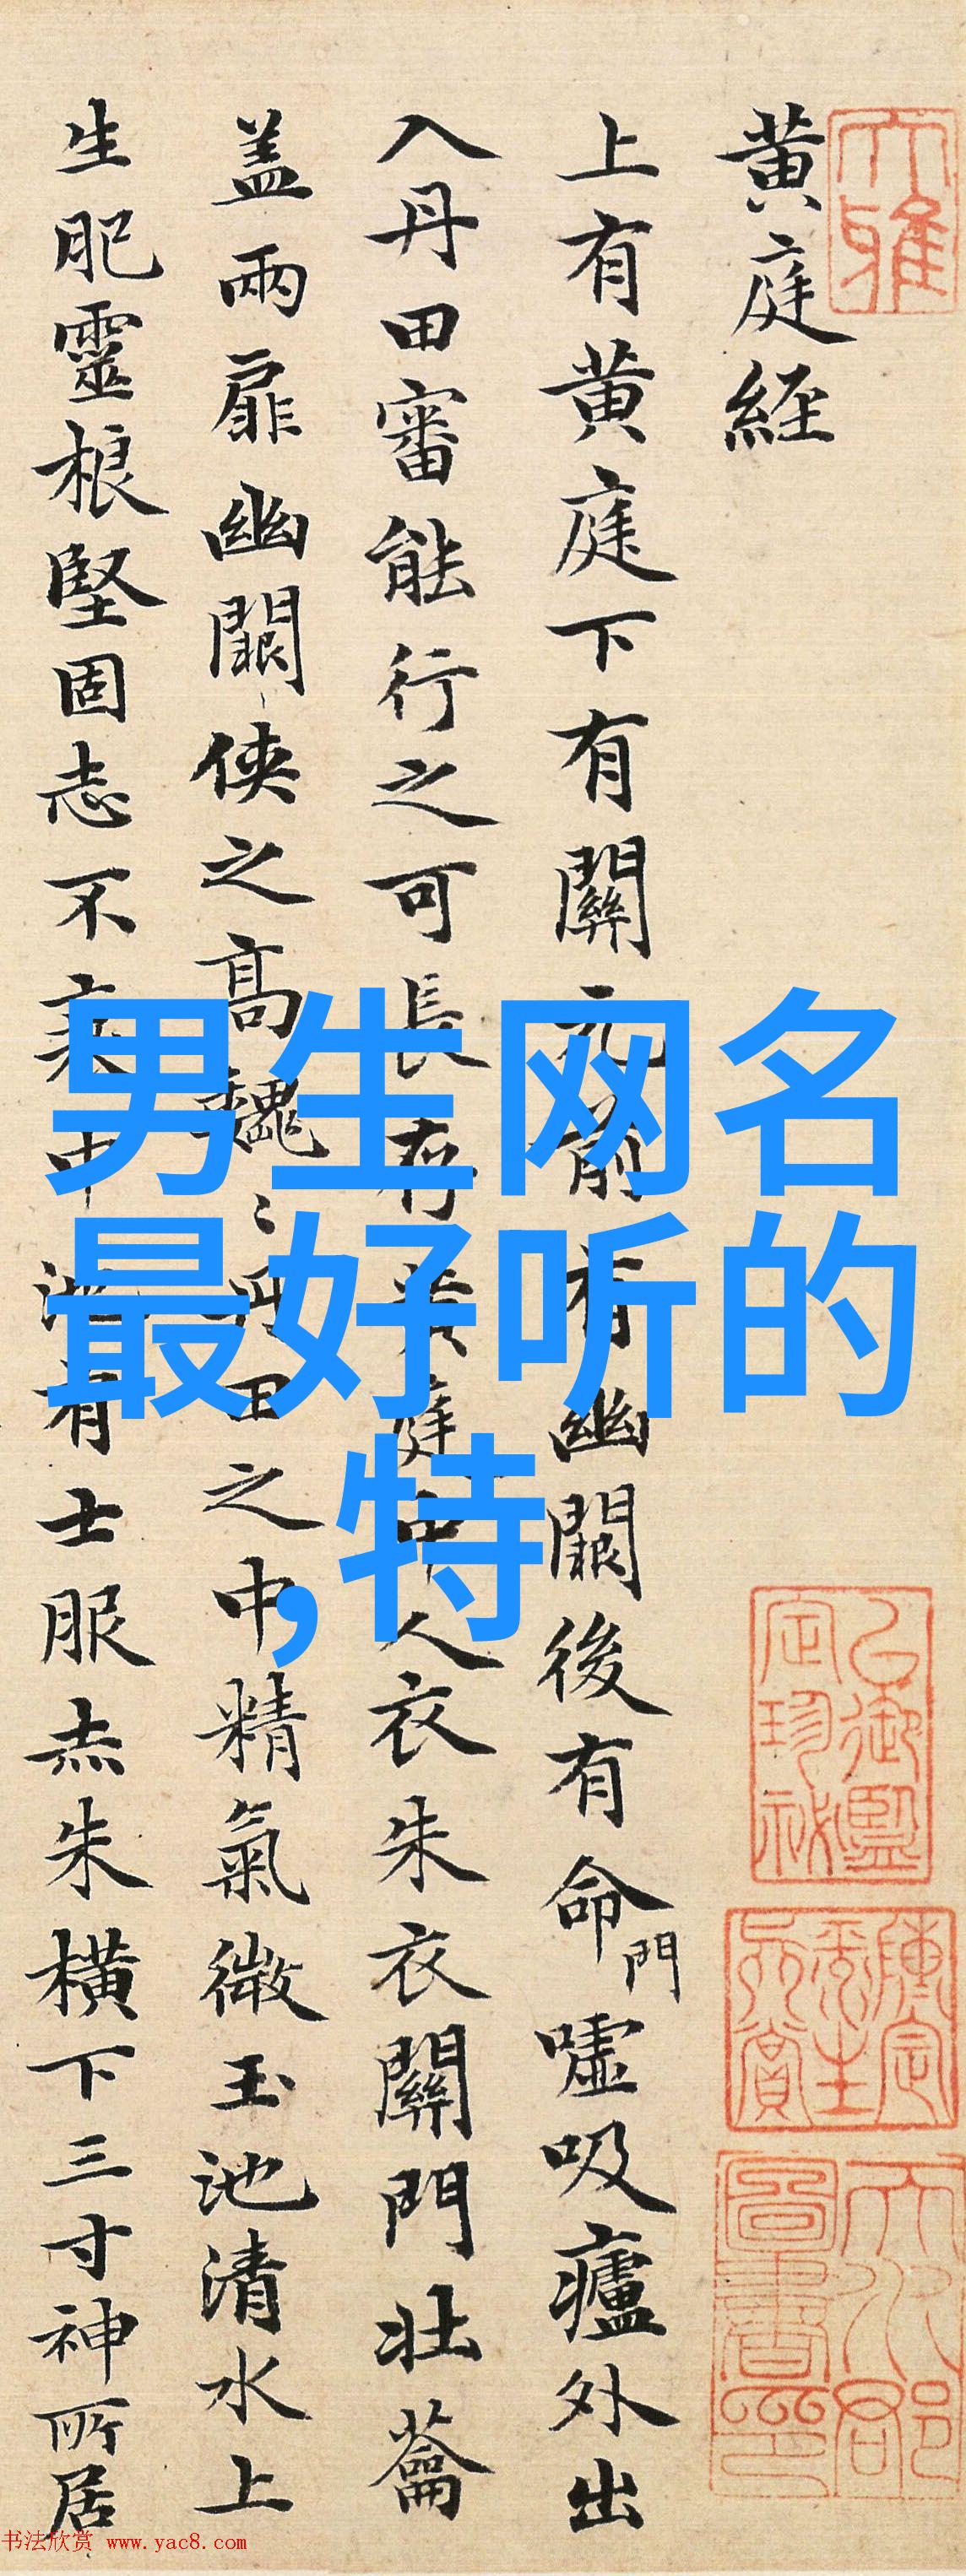 大雅
黄庭經
上有黄庭下有關元前有幽闕後有命門嘘吸廬外出
入丹田審能行之可長存黄庭中人衣朱衣關門壯蘥
盖兩扉幽闕俠之高魏〻丹田之中精氣微玉池清水上
生肥靈根堅固志不衰中池有士服赤朱横下三寸神所居
男生网名
最好听的
,特
书法欣赏 www.yac8.com